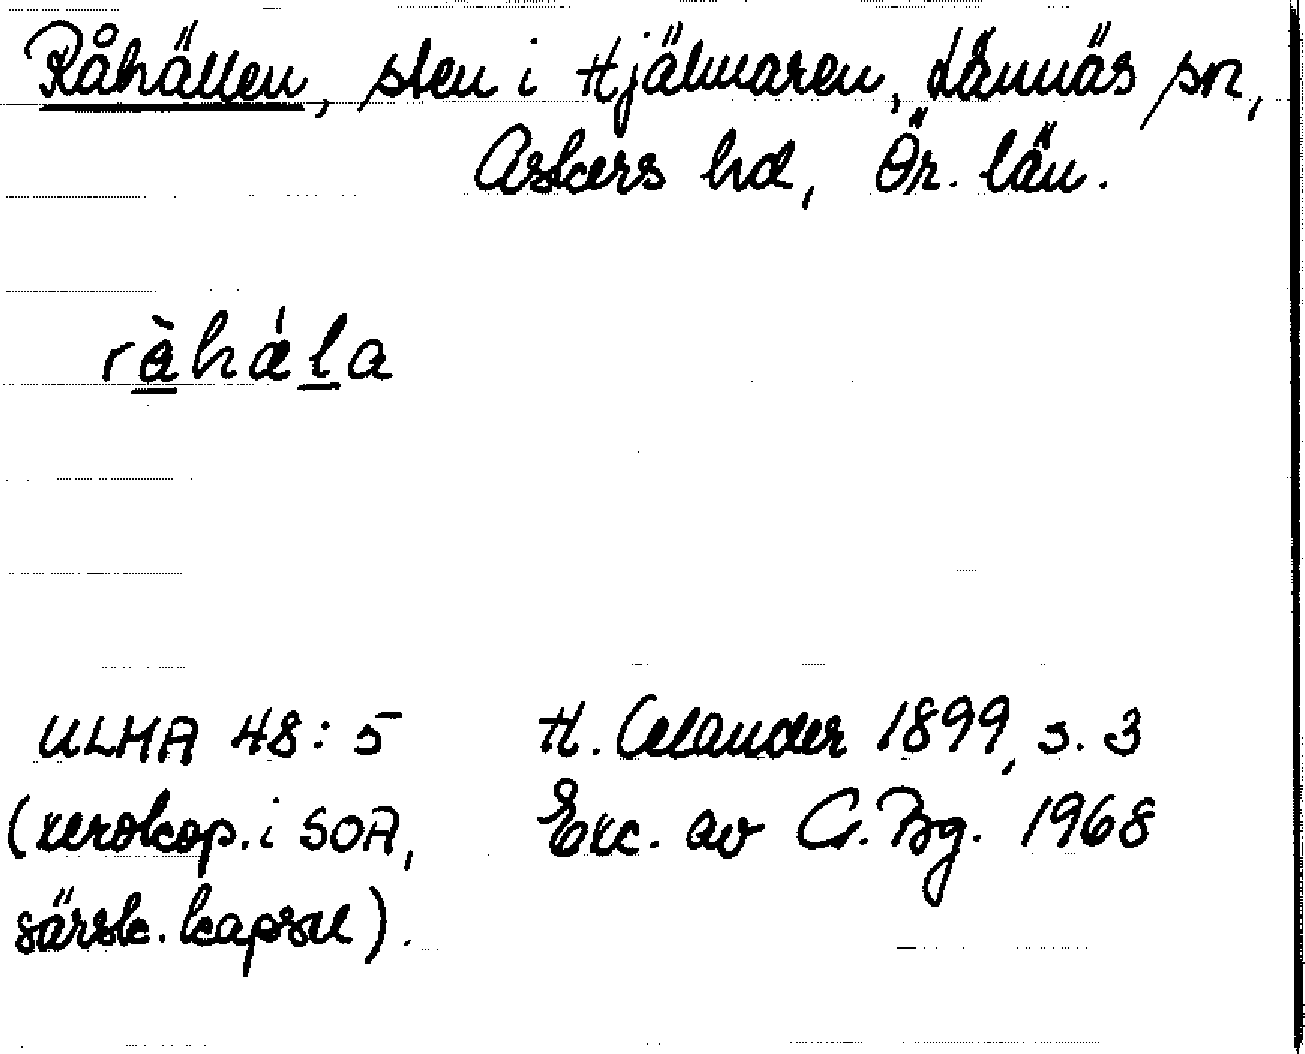 Råhällen, sten i Hjälmaren, Lännäs sn,
Askers hd, Ör. län.
rå̀hǽla
ULMA 48:5 H. Celander 1899, s. 3
(xerokop. i SOA, Exc. av C. Bg. 1968
särsk. kapsel).